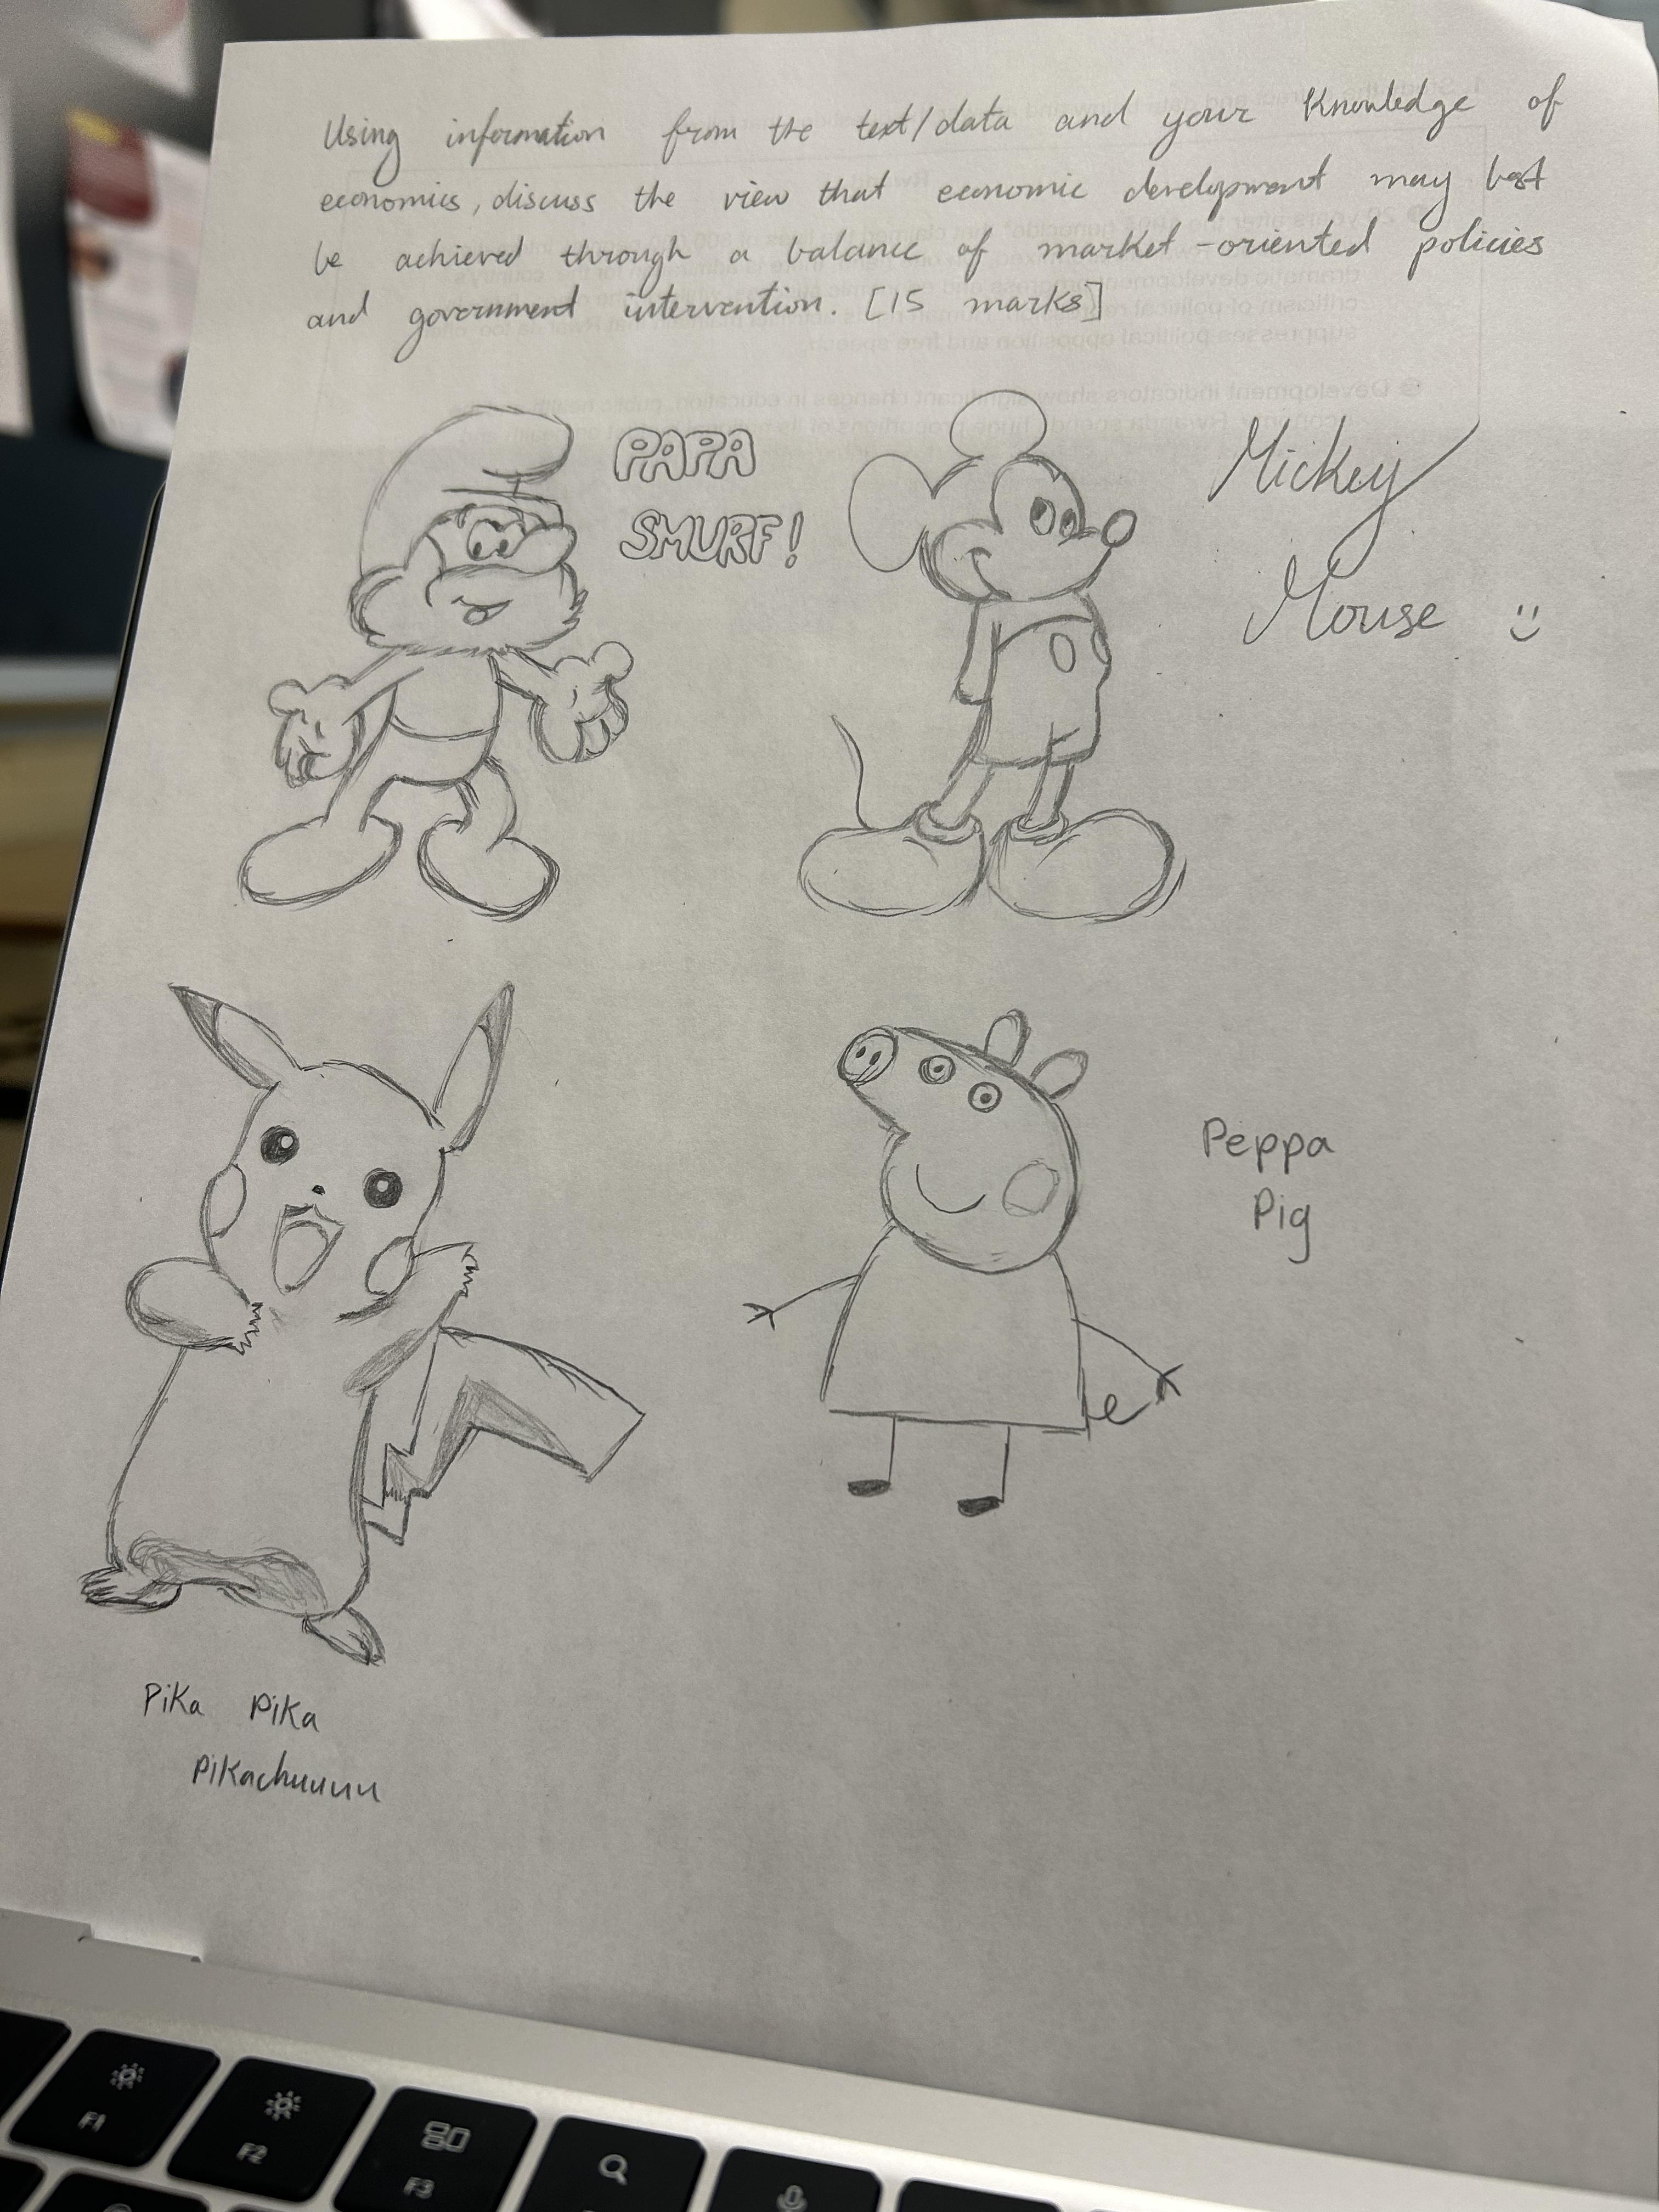 Using information from the text/data and your Knowledge of
economics, discuss the view that economic development may best
be achieved through a balance of market-oriented policies
and government intervention. [15 marks]
PAPA
SMURF!
Mickey
Mouse :)
Peppa
Pig
Pika Pika
Pikachuuuu
F1
F2
F3